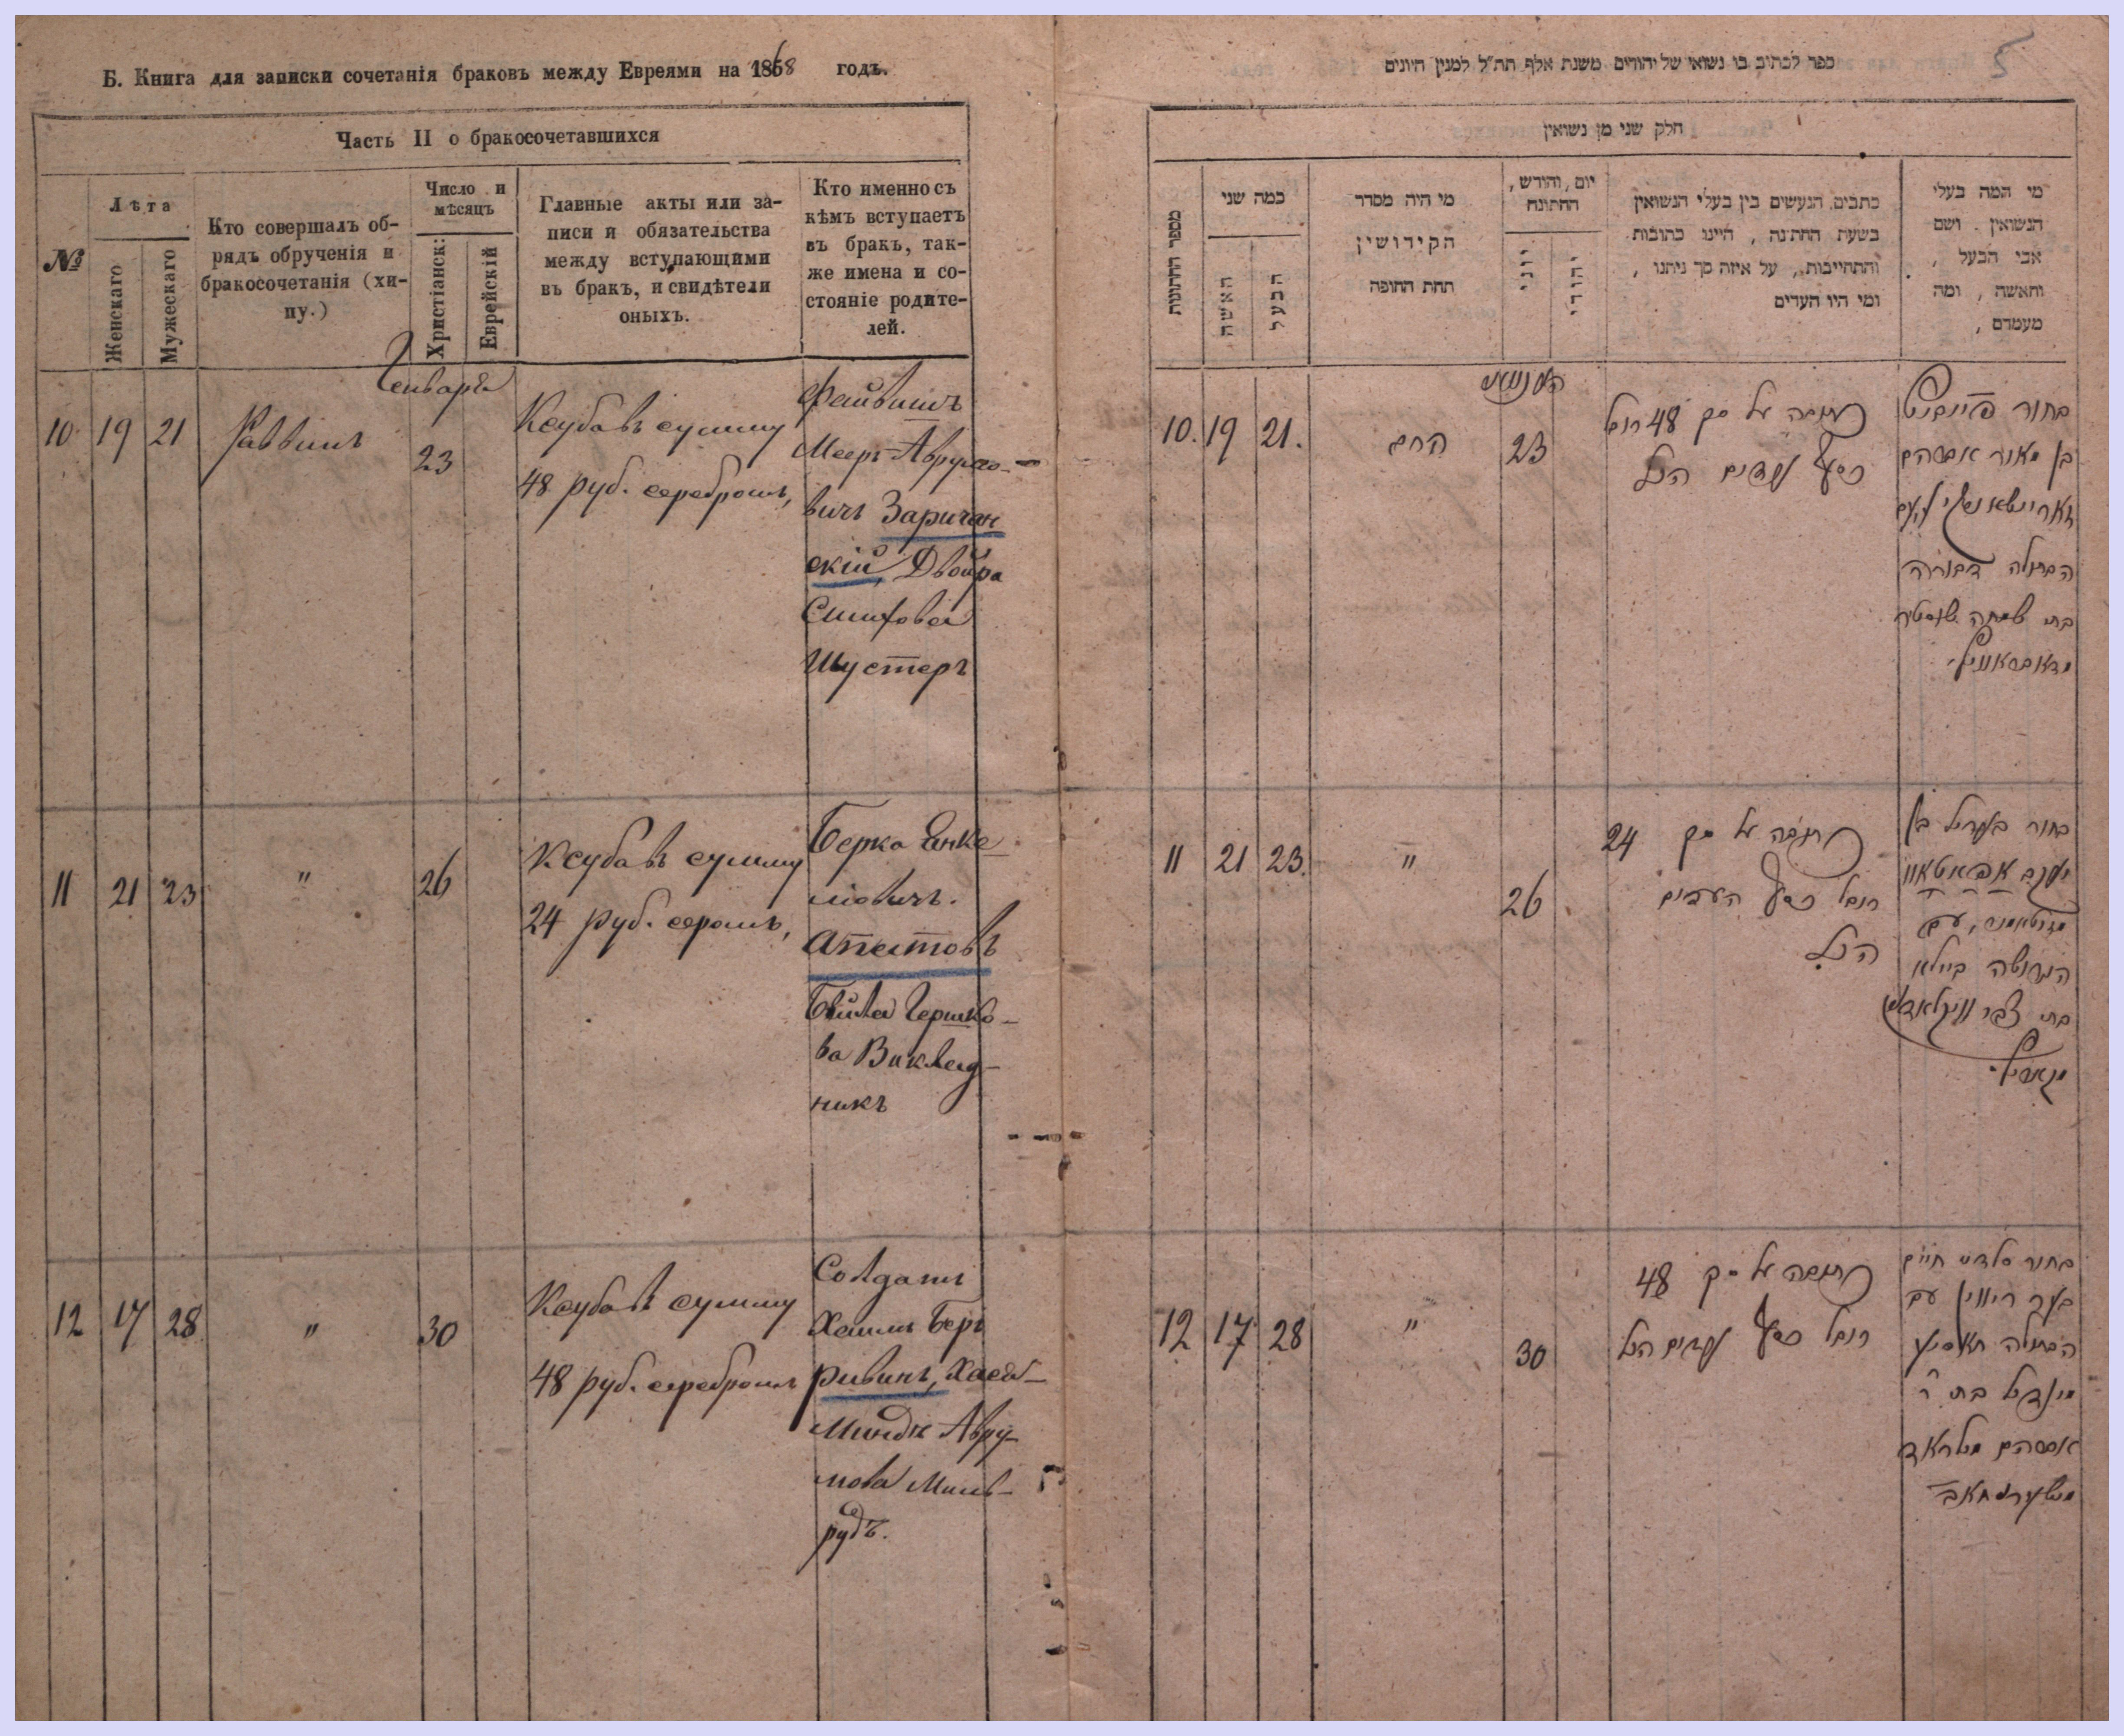 Б. Книга для записки сочетанія браковъ между Евреями на 1868 годъ.
Часть II о бракосочетавшихся
№
Лѣта
Женскаго
Мужескаго
Кто совершалъ об-
рядъ обрученія и
бракосочетанія (хи-
пу.)
Число и
мѣсяцъ
Христіанск:
Еврейскій
Главные акты или за-
писи и обязательства
между вступающими
въ бракъ, и свидѣтели
оныхъ.
Кто именно съ
кѣмъ вступаетъ
въ бракъ, так-
же имена и со-
стояніе родите-
лей.
Генваря
10 19 21 Раввинъ 23
Ксуба въ сумму
48 руб. серебромъ,
Файвишъ
Мееръ Аврумо-
вичъ Заричан
скій, Двойра
Симхова
Шустеръ
11 21 23 " 26
Ксуба въ сумму
24 руб. сером.,
Берко Янке
ліовичъ
Апатовъ
Бейла Гершко-
ва Виклад-
никъ
12 17 28 " 30
Ксуба въ сумму
48 руб. серебромъ
Солдатъ
Хаимъ Беръ
Ривинъ, Хася-
Миндя Авру-
мова Миль-
рудъ.
5
ספר לכתוב בו נשואי של יהודים משנת אלף תת"ל למנין היונים
חלק שני מן נשואין
מספר החתונות
כמה שני
האשה
הבעל
מי היה מסדר
הקידושין
תחת החופה
יום, והודש,
החתונה
יוני
יהודי
כתבים הנעשים בין בעלי הנשואין
בשעת החתנה, היינו כתובות
והתחייבות, על איזה סך ניתנו,
ומי היו העדים
מי המה בעלי
הנשואין. ושם
אבי הבעל,
והאשה, ומה
מעמדם,
10. 19 21. הרב 23
כתובה על סך 48 רובל
כסף
בחור
בן מאיר אברהם
הבתולה דבורה
בת שמחה שוסטער
11 21 23. " 26
כתובה על סך 24
רובל כסף העדים
הנ"ל
בחור בעריל בן
יעקב אפאטאוו
הגרושה ביילא
12 17 28 " 30
כתובה על סך 48
רובל כסף
בחור סלדט חיים
בער ריווין עם
הבתולה חאסיע
מינדיל בת ר'
אברהם מילראד